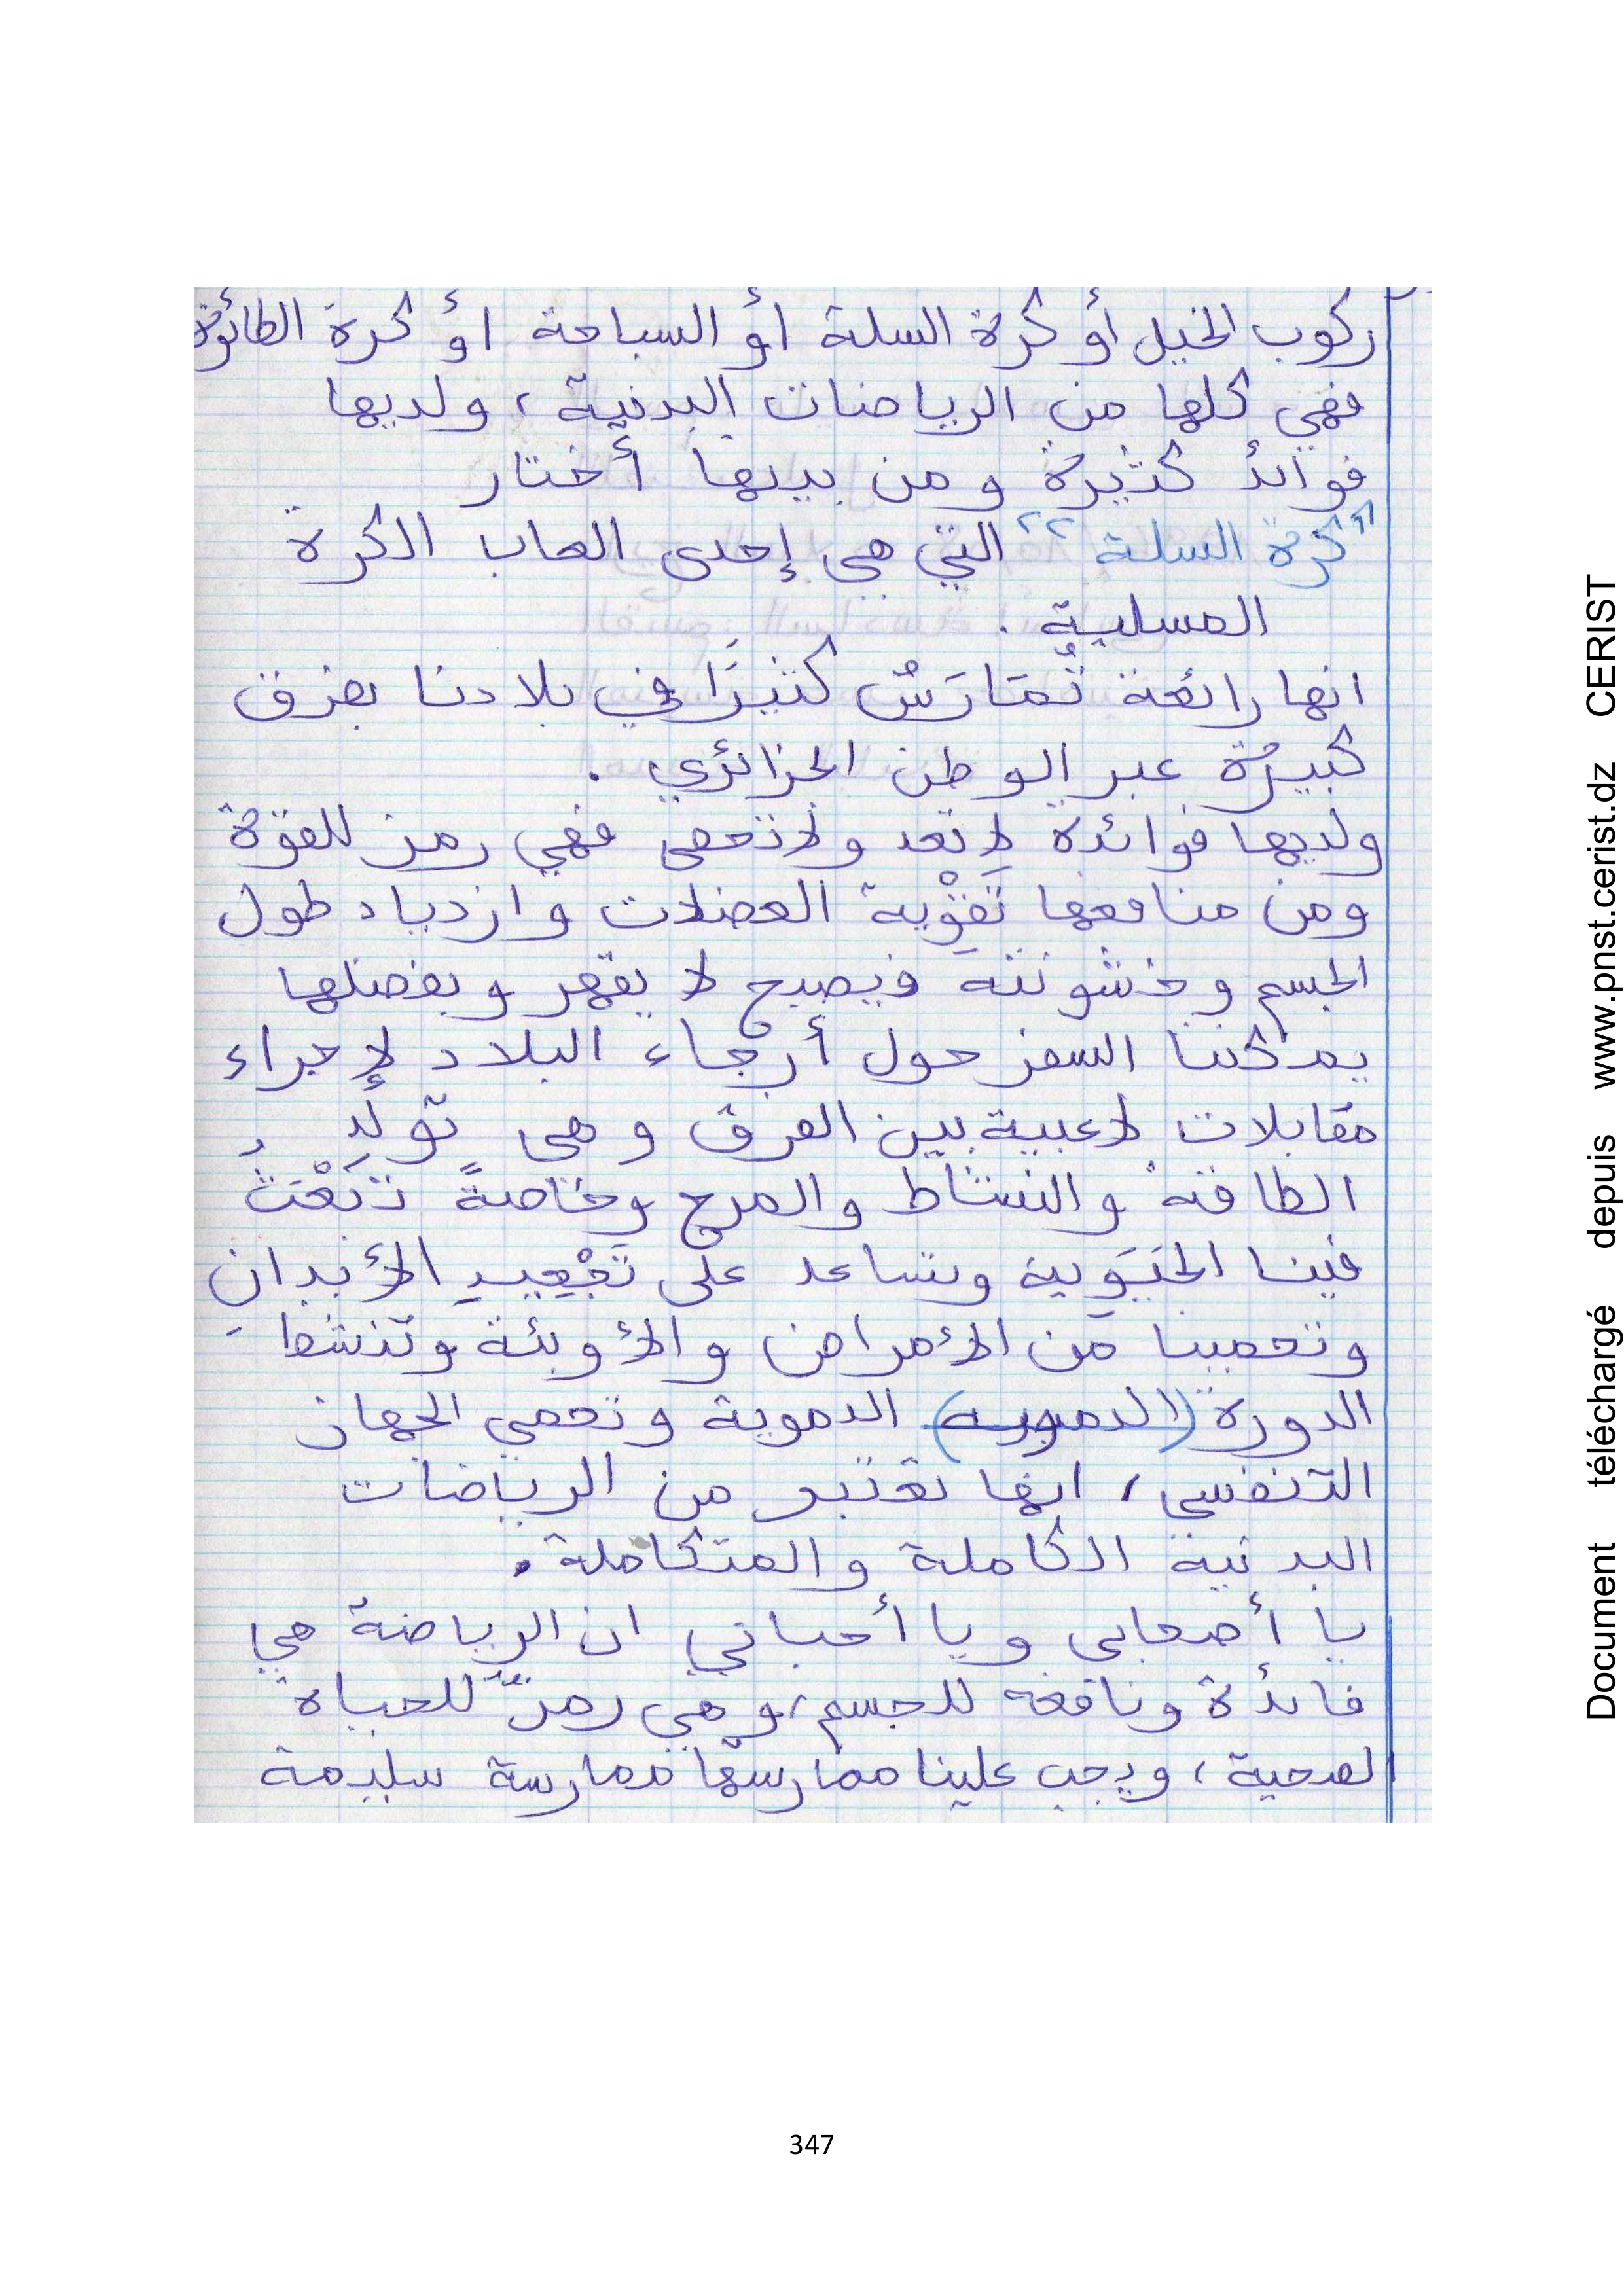 ركوب الخيل أو كرة السلة أو السباحة أو كرة الطائرة
فهي كلها من الرياضات البدنية، ولديها
فوائد كثيرة ومن بينها أختار
"كرة السلة" التي هي إحدى العاب الكرة
المسلية.
انها رائعة تُمَارَسُ كثيرًا في بلادنا بفرق
كبيرة عبر الوطن الجزائري.
ولديها فوائده لا تعد ولا تحصى فهي رمز للقوة
ومن منافعها تَقْوِية العضلات وازدياد طول
الجسم وخشونته فيصبح لا يقهر وبفضلها
يمكننا السفر حول أرجاء البلاد لإجراء
مقابلات لاعبية بين الفرق وهي تولد
الطاقة والنشاط والمرح وخاصةً تَبْعَثُ
فينا الحَيَوِية وتساعد على الأبدانِ
وتحمينا من الأمراض والأوبئة وتنشط
الدورة (الدموية) الدموية وتحمي الجهاز
التنفسي، انها تعتبر من الرياضات
البدنية الكاملة والمتكاملة.
يا أصحابي ويا أحبائي ان الرياضة هي
فائدة ونافعة للجسم، وهي رمزٌ للحياة
لصحية، ويجب علينا ممارستها ممارسة سليمة
347
Document téléchargé depuis www.pnst.cerist.dz CERIST